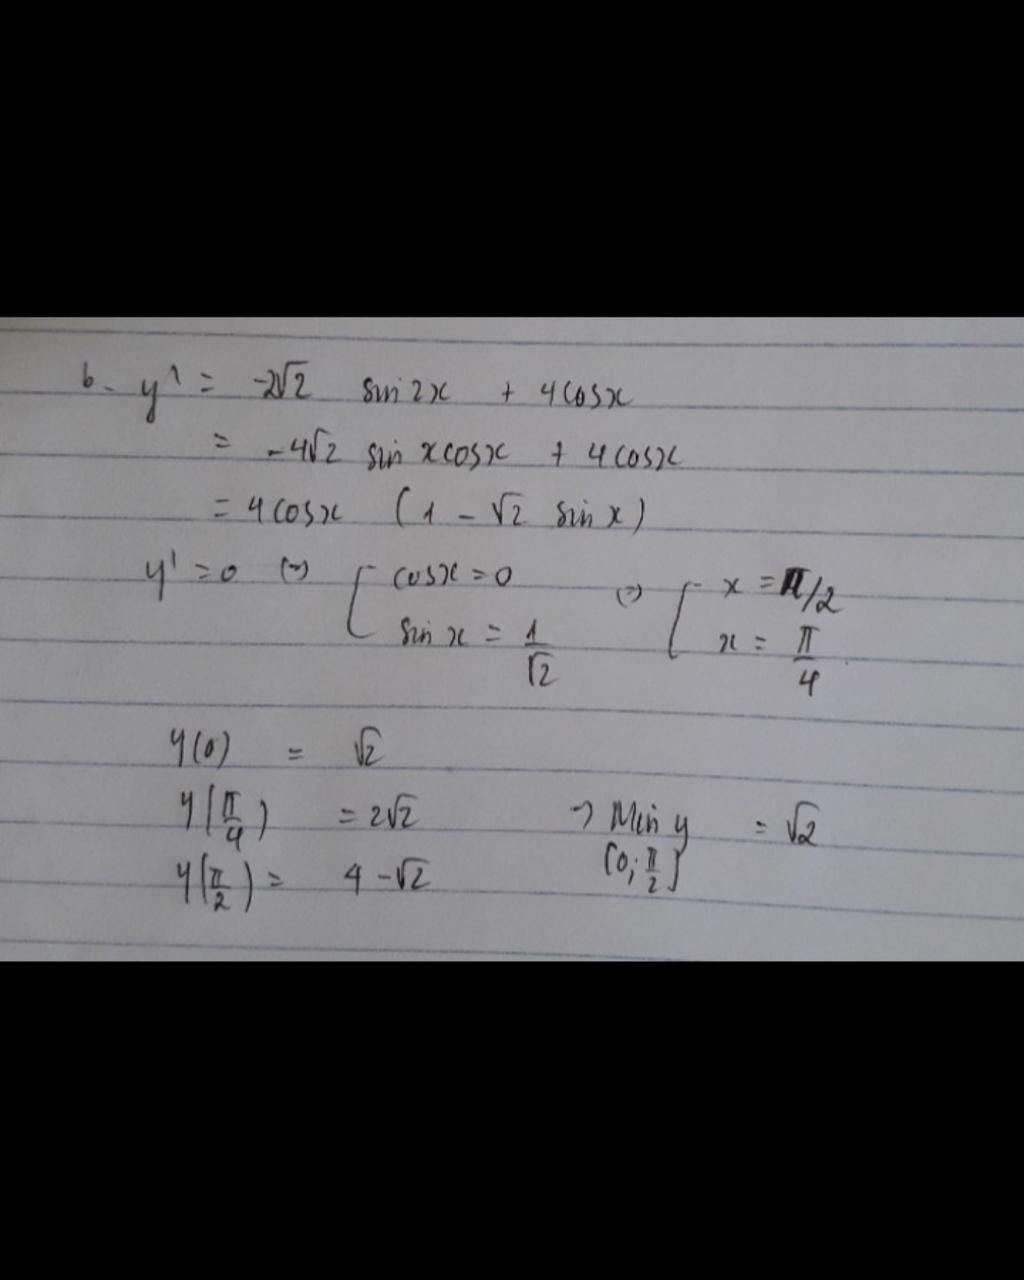 b. y' = -2√2 sin 2x + 4cosx
= -4√2 sin xcosx + 4cosx
= 4cosx (1 - √2 sin x)
y' = 0 (=) [ cosx = 0 (=) [ x = π/2
sin x = 1/√2 x = π/4
y(0) = √2
y(π/4) = 2√2 => Min y = √2
y(π/2) = 4 - √2 [0; π/2]